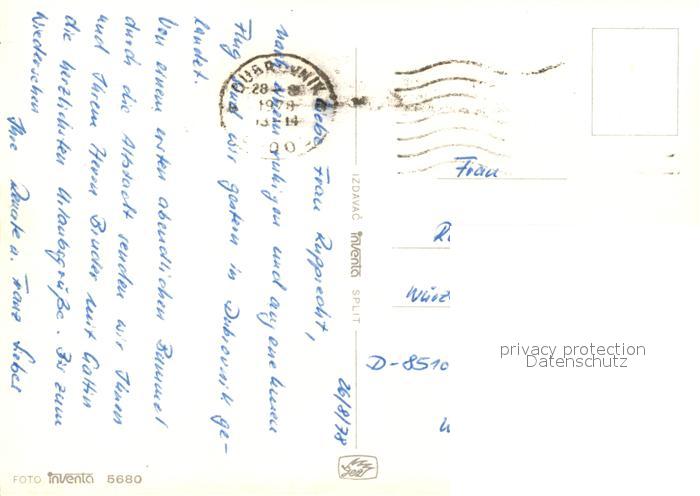 26/8/78
Liebe Frau Rupprecht,
nach einem ruhigen und angenehmen
Flug sind wir gestern in Dubrovnik ge-
landet.
Von einem ersten abendlichen Bummel
durch die Altstadt senden wir Ihnen
und Ihrem Herrn Bruder mit Gattin
die herzlichsten Urlaubsgrüße. Bis zum
Wiedersehen
Ihre Renate u. Franz
DUBROVNIK
28-8
1978
13-14
00
Frau
R
Würz
D-8510
privacy protection
Datenschutz
IZDAVAČ inventa SPLIT
FOTO inventa 5680